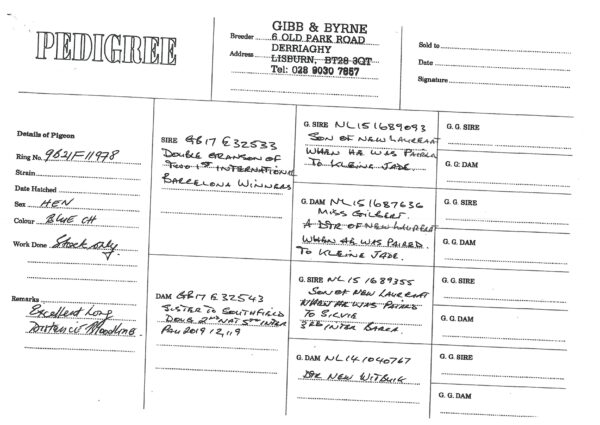 PEDIGREE
GIBB & BYRNE
Breeder 6 OLD PARK ROAD
DERRIAGHY
Address LISBURN, BT28 3QT
Tel: 028 9030 7857
Sold to
Date
Signature
Details of Pigeon
Ring No. GB21F11978
Strain
Date Hatched
Sex HEN
Colour BLUE CH
Work Done Stock only
Remarks
Excellent Long
Distance Bloodline
SIRE GB17 E32533
DOUBLE GRANSON OF
TWO 1ST INTERNATIONAL
BARCELONA WINNERS
DAM GB17 E32543
SISTER TO SOUTHFIELD
DOUG 2ND NAT 5TH INTER
PAU 2019 12,119
G. SIRE NL15 1689093
SON OF NEW LAUREAAT
WHEN HE WAS PAIRED
TO KLEINE JADE.
G. DAM NL15 1687636
MISS GILBERT.
A DTR OF NEW LAUREAAT
WHEN HE WAS PAIRED.
TO KLEINE JADE.
G. SIRE NL15 1689355
SON OF NEW LAUREAAT
WHEN HE WAS PAIRED
TO SILVIE
3RD INTER BARCA.
G. DAM NL14 1040767
DTR NEW WITBUIK
G. G. SIRE
G. G. DAM
G. G. SIRE
G. G. DAM
G. G. SIRE
G. G. DAM
G. G. SIRE
G. G. DAM